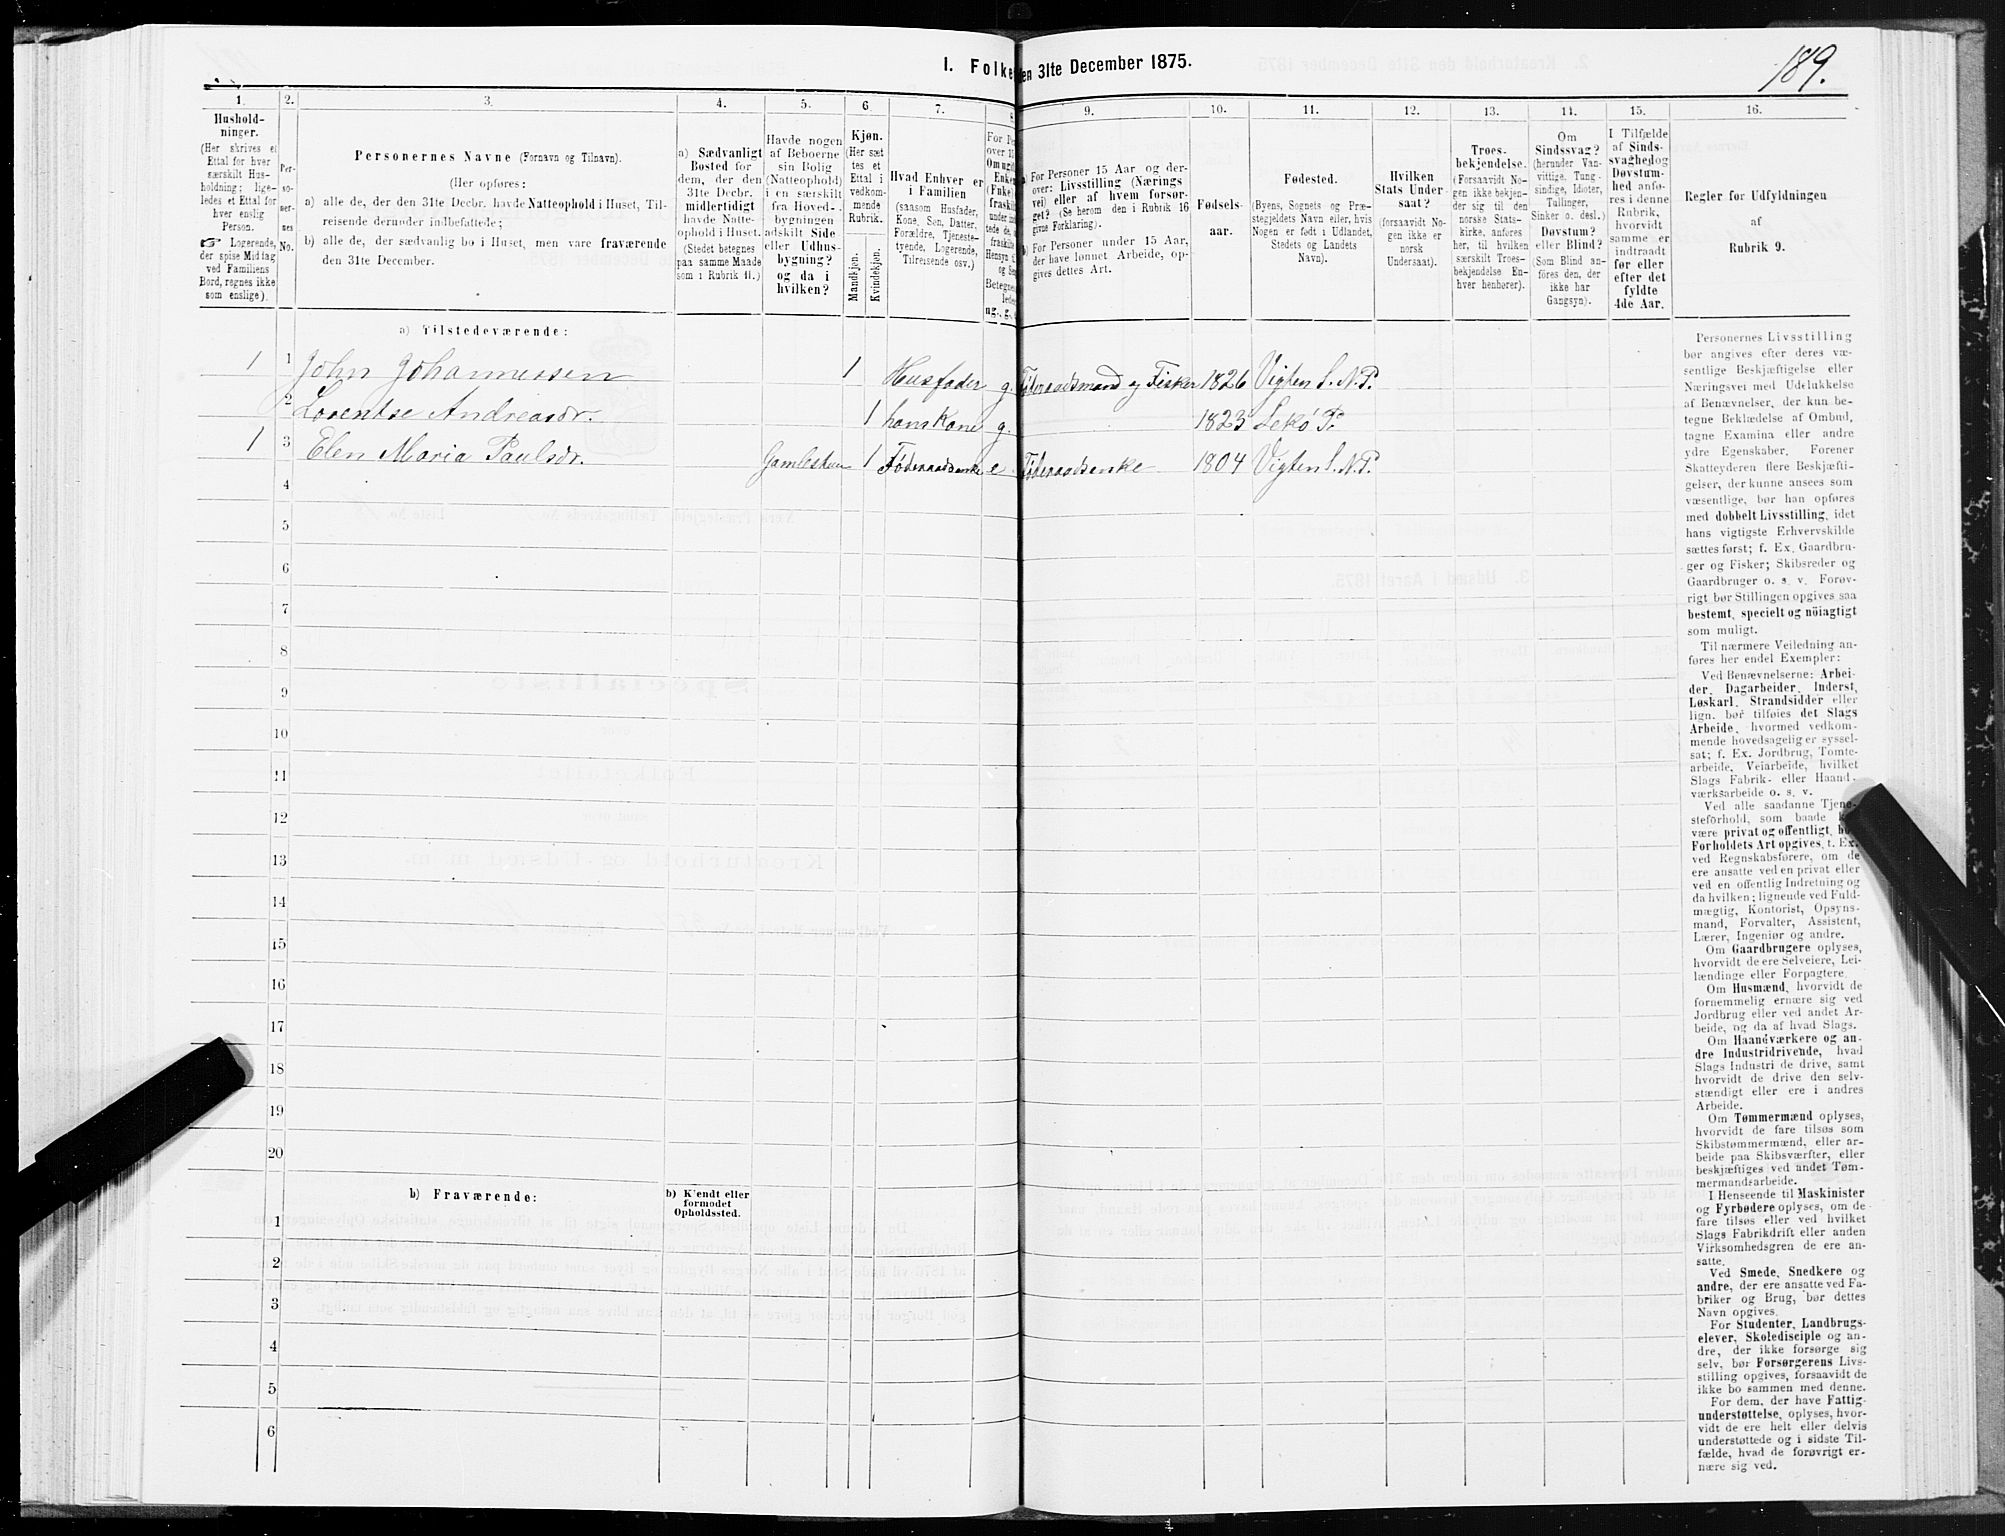 189.
I. Folke en 31te December 1875.
1. 2. 3. 4. 5. 6. 7. 8. 9. 10. 11. 12. 13. 14. 15. 16.
Hushold-
ninger.
(Her skrives et
Ettal for hver
særskilt Hus-
holdning; lige-
ledes et Ettal for
hver enslig
Person.
☞ Logerende,
der spise Middag
ved Familiens
Bord, regnes ikke
som enslige).
Per-
so-
ner-
nes
No.
Personernes Navne (Fornavn og Tilnavn).
(Her opføres:
a) alle de, der den 31te Decbr. havde Natteophold i Huset, Til-
reisende derunder indbefattede;
b) alle de, der sædvanlig bo i Huset, men vare fraværende
den 31te December.
a) Sædvanligt
Bosted for
dem, der den
31te Decbr.
midlertidigt
havde Natte-
ophold i Huset.
(Stedet betegnes
paa samme Maade
som i Rubrik 11.)
Havde nogen
af Beboerne
sin Bolig
(Natteophold)
i en særskilt
fra Hoved-
bygningen
adskilt Side
eller Udhus-
bygning?
og da i
hvilken?
Kjøn.
(Her sæt
tes et
Ettal i
vedkom-
mende
Rubrik.
Mandkjøn.
Kvindekjøn.
Hvad Enhver er
i Familien
(saasom Husfader,
Kone, Søn, Datter,
Forældre, Tjeneste-
tyende, Logerende,
Tilreisende osv.)
For Per
over 15
Omugift
Enken
(Fruke)
fraskilt
under ind
tede de,
fraskilte
Hensyn t.
og Se
Betegnes
lede
ug., g.,
a) For Personer 15 Aar og der-
over: Livsstilling (Nærings
vei) eller af hvem forsør-
get? (Se herom den i Rubrik 16
givne Forklaring).
b) For Personer under 15 Aar,
der have lønnet Arbeide, op-
gives dettes Art.
Fødsels-
aar.
Fødested.
(Byens, Sognets og Præ-
stegjeldets Navn eller, hvis
Nogen er født i Udlandet,
Stedets og Landets
Navn).
Hvilken
Stats Under-
saat?
(forsaavidt No-
gen ikke er
norsk
Undersaat).
Troes-
bekjendelse.
(Forsaavidt No-
gen ikke bekjen-
der sig til den
norske Stats-
kirke, anføres
her, til hvilken
særskilt Troes-
bekjendelse En-
hver henhører).
Om
Sindssvag?
(herunder Van-
vittige, Tung-
sindige, Idioter,
Tullinger,
Sinker o. desl.)
Døvstum?
eller Blind?
(Som Blind an-
føres den, der
ikke har
Gangsyn).
I Tilfælde
af Sinds-
svaghed og
Døvstum-
hed anfø-
res i denne
Rubrik,
hvorvidt
samme er
indtraadt
før eller
efter det
fyldte
4de Aar.
Regler for Udfyldningen
af
Rubrik 9.
a) Tilstedeværende:
1 1 John Johannessen 1 Husfader g. Føderaadsmand og Fisker 1826 Vigten S. N.P.
2 Lorentse Andreasdr. 1 hans Kone g. 1823 Lekø P.
1 3 Elen Maria Paulsdr. Gamlestuen 1 Føderaadsenke e Føderaadsenke 1804 Vigten S. N.P.
4
5
6
7
8
9
10
11
12
13
14
15
16
17
18
19
20
b) Fraværende:
b) Kjendt eller
formodet
Opholdssted.
1
2
3
4
5
6
Personernes Livsstilling
bør angives efter deres væ-
sentlige Beskjæftigelse eller
Næringsvei med Udelukkelse
af Benævnelser, der kun be-
tegne Beklædelse af Ombud,
tagne Examina eller andre
ydre Egenskaber. Forener
Skatteyderen flere Beskjæfti-
gelser, der kunne ansees som
væsentlige, bør han opføres
med dobbelt Livsstilling, idet
hans vigtigste Erhvervskilde
sættes først; f. Ex. Gaardbru-
ger og Fisker; Skibsreder og
Gaardbruger o. s. v. Forøv-
rigt bør Stillingen opgives saa
bestemt, specielt og nöiagtigt
som muligt.
Til nærmere Veiledning an-
føres her endel Exempler:
Ved Benævnelserne: Arbei-
der, Dagarbeider, Inderst,
Løskarl, Strandsidder eller
lign. bør tilføies det Slags
Arbeide, hvormed vedkom-
mende hovedsagelig er syssel-
sat; f. Ex. Jordbrug, Tomte-
arbeide, Veiarbeide, hvilket
Slags Fabrik- eller Haand-
værksarbeide o. s. v.
Ved alle saadanne Tjene-
steforhold, som baade k
være privat og offentligt, bø
Forholdets Art opgives, f. Ex.
ved Regnskabsførere, om de
ere ansatte ved en privat eller
ved en offentlig Indretning og
da hvilken; lignende ved Fuld-
mægtig, Kontorist, Opsyns-
mand, Forvalter, Assistent,
Lærer, Ingeniør og andre.
Om Gaardbrugere oplyses,
hvorvidt de ere Selveiere, Lei-
lændinge eller Forpagtere.
Om Husmænd, hvorvidt de
fornemmelig ernære sig ved
Jordbrug eller ved andet Ar-
beide, og da af hvad Slags.
Om Haandværkere og an-
dre Industridrivende, hvad
Slags Industri de drive, samt
hvorvidt de drive den selv-
stændigt eller ere i andres
Arbeide.
Om Tømmermænd oplyses,
hvorvidt de fare tilsøs som
Skibstømmermænd, eller ar-
beide paa Skibsværfter, eller
beskjæftiges ved andet Tøm-
mermandsarbeide.
I Henseende til Maskinister
og Fyrbødere oplyses, om de
fare tilsøs eller ved hvilket
Slags Fabrikdrift eller anden
Virksomhedsgren de ere an-
satte.
Ved Smede, Snedkere og
andre, der ere ansatte ved Fa-
briker og Brug, bør dettes
Navn opgives.
For Studenter, Landbrugs-
elever, Skoledisciple og an-
dre, der ikke forsørge sig
selv, bør Forsørgerens Livs-
stilling opgives, forsaavidt de
ikke bo sammen med denne.
For dem, der have Fattig-
understøttelse, oplyses, hvor-
vidt de ere helt eller delvis
understøttede og i sidste Til-
fælde, hvad de forøvrigt er-
nære sig ved.